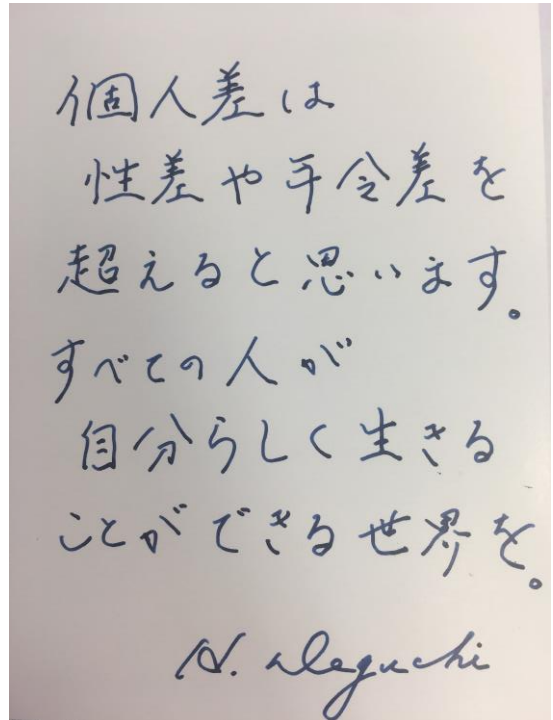 個人差は
性差や年令差を
超えると思います。
すべての人が
自分らしく生きる
ことができる世界を。
H. Deguchi